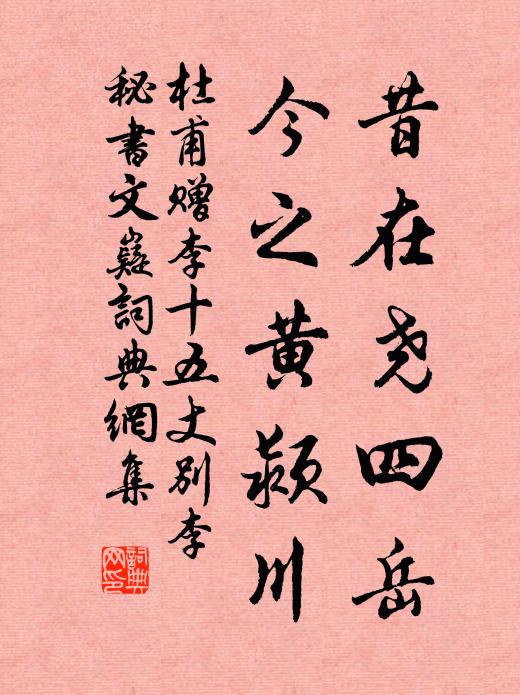 昔在尧四岳
今之黄颍川
杜甫赠李十五丈别李
秘書文嶷詞典網集
詞典网印